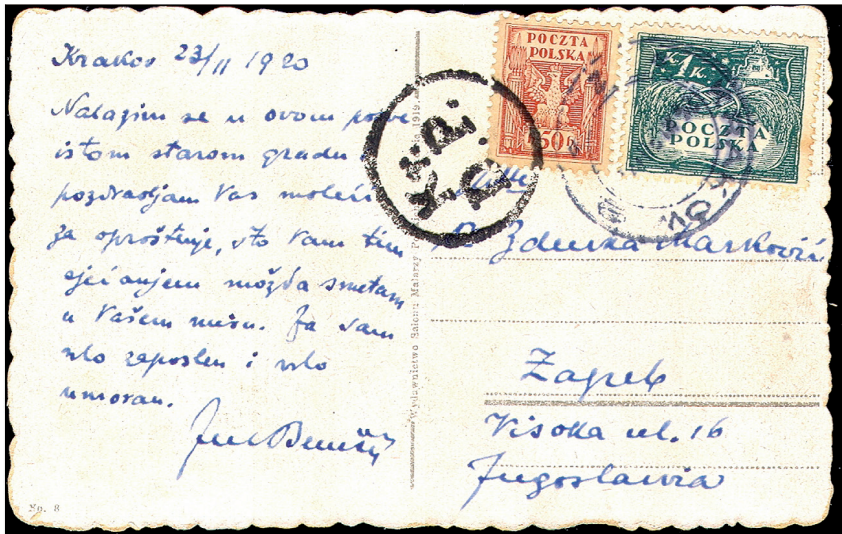 Krakov 23/II 1920
Nalazim se u ovom
istom starom gradu
pozdravljam Vas moleći
za oproštenje, što Vam tim
sjećanjem možda smetam
u Vašem miru. Ja sam
vrlo zaposlen i vrlo
umoran.
No. 8
Wydawnictwo Salonu Malarzy
1919.
POCZTA
POLSKA
50
1 K.
POCZTA
POLSKA
Mlle
Zdenka Marković
Zagreb
Visoka ul. 16
Jugoslawia